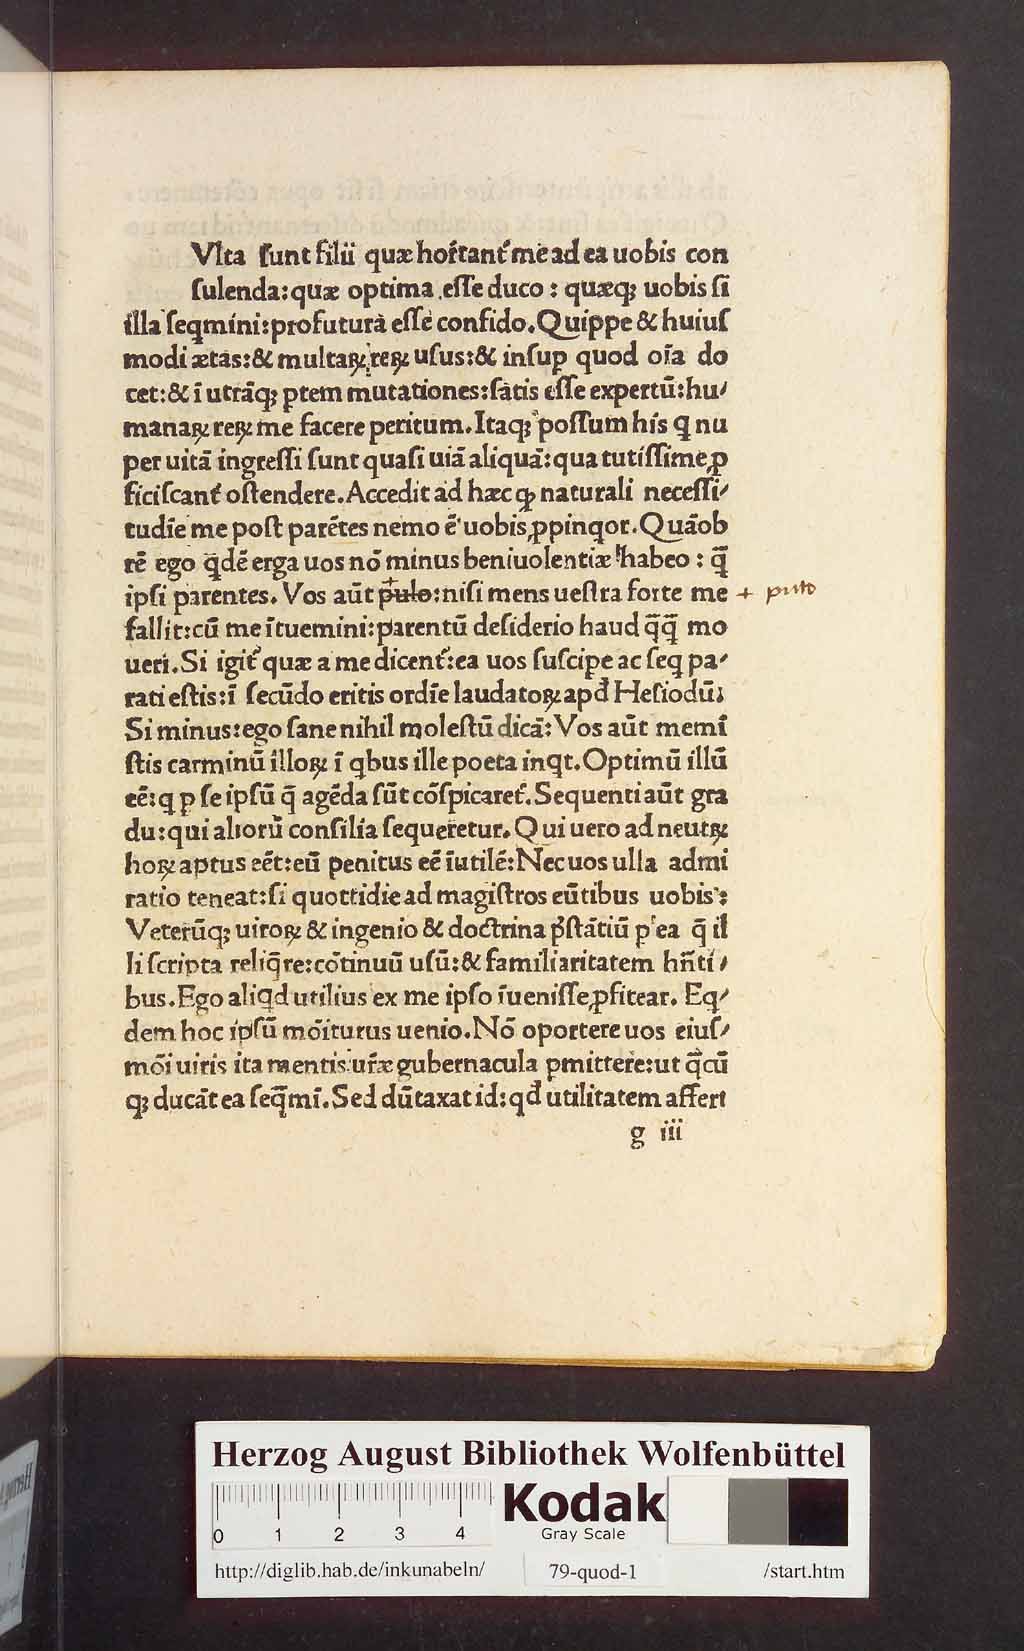 Vlta ſunt filii quæ hortant᷑ me ad ea uobis con
ſulenda: quæ optima eſſe duco: quæq; uobis ſi
illa ſeqmini: profutura eſſe confido. Quippe & huiuſ
modi ætas: & multaꝝ reꝝ uſus: & inſuꝑ quod oīa do
cet: & ī utrāq; ꝑtem mutationes: ſatis eſſe expertū: hu/
manaꝝ reꝝ me facere peritum. Itaq; poſſum his q̇ nu
per uitā ingreſſi ſunt quaſi uiā aliquā: qua tutiſſime ꝓ
ficiſcant᷑ oſtendere. Accedit ad hæc ꝙ naturali neceſſi/
tudīe me poſt parētes nemo ē uobis ꝓpinqor. Quāob
rē ego qdē erga uos nō minus beniuolentiæ habeo: q̄
ipſi parentes. Vos aūt pulo: niſi mens ueſtra forte me + puto
fallit: cū me ītuemini: parentū deſiderio haud q̄q̄ mo
ueri. Si igit᷑ quæ a me dicent᷑: ea uos ſuſcipe ac ſeq pa/
rati eſtis: ī ſecūdo eritis ordīe laudatoꝝ apđ Heſiodū:
Si minus: ego ſane nihil moleſtū dicā: Vos aūt memī
ſtis carminū illoꝝ ī qbus ille poeta inqt. Optimū illū
eē: q ꝑ ſe ipſū q̄ agēda ſūt cōſpicaret᷑. Sequenti aūt gra
du: qui aliorū conſilia ſequeretur. Qui uero ad neutꝝ
hoꝝ aptus eēt: eū penitus eē īutilē: Nec uos ulla admi
ratio teneat: ſi quottidie ad magiſtros eūtibus uobis:
Veterūq; uiroꝝ & ingenio & doctrina p̄ſtātiū ꝑ ea q̄ il
li ſcripta reliq̄re: cōtinuū uſū: & familiaritatem hn̄ti/
bus. Ego aliqd utilius ex me ipſo īueniſſe ꝓfitear. Eq/
dem hoc ipſū mōiturus uenio. Nō oportere uos eiuſ/
mōi uiris ita mentis ur̄æ gubernacula ꝑmittere: ut q̄cū
q; ducāt ea ſeq̄mī. Sed dūtaxat id: qđ utilitatem affert
g iii
Herzog August Bibliothek Wolfenbüttel
0 1 2 3 4
Kodak
Gray Scale
http://diglib.hab.de/inkunabeln/ 79-quod-1 /start.htm